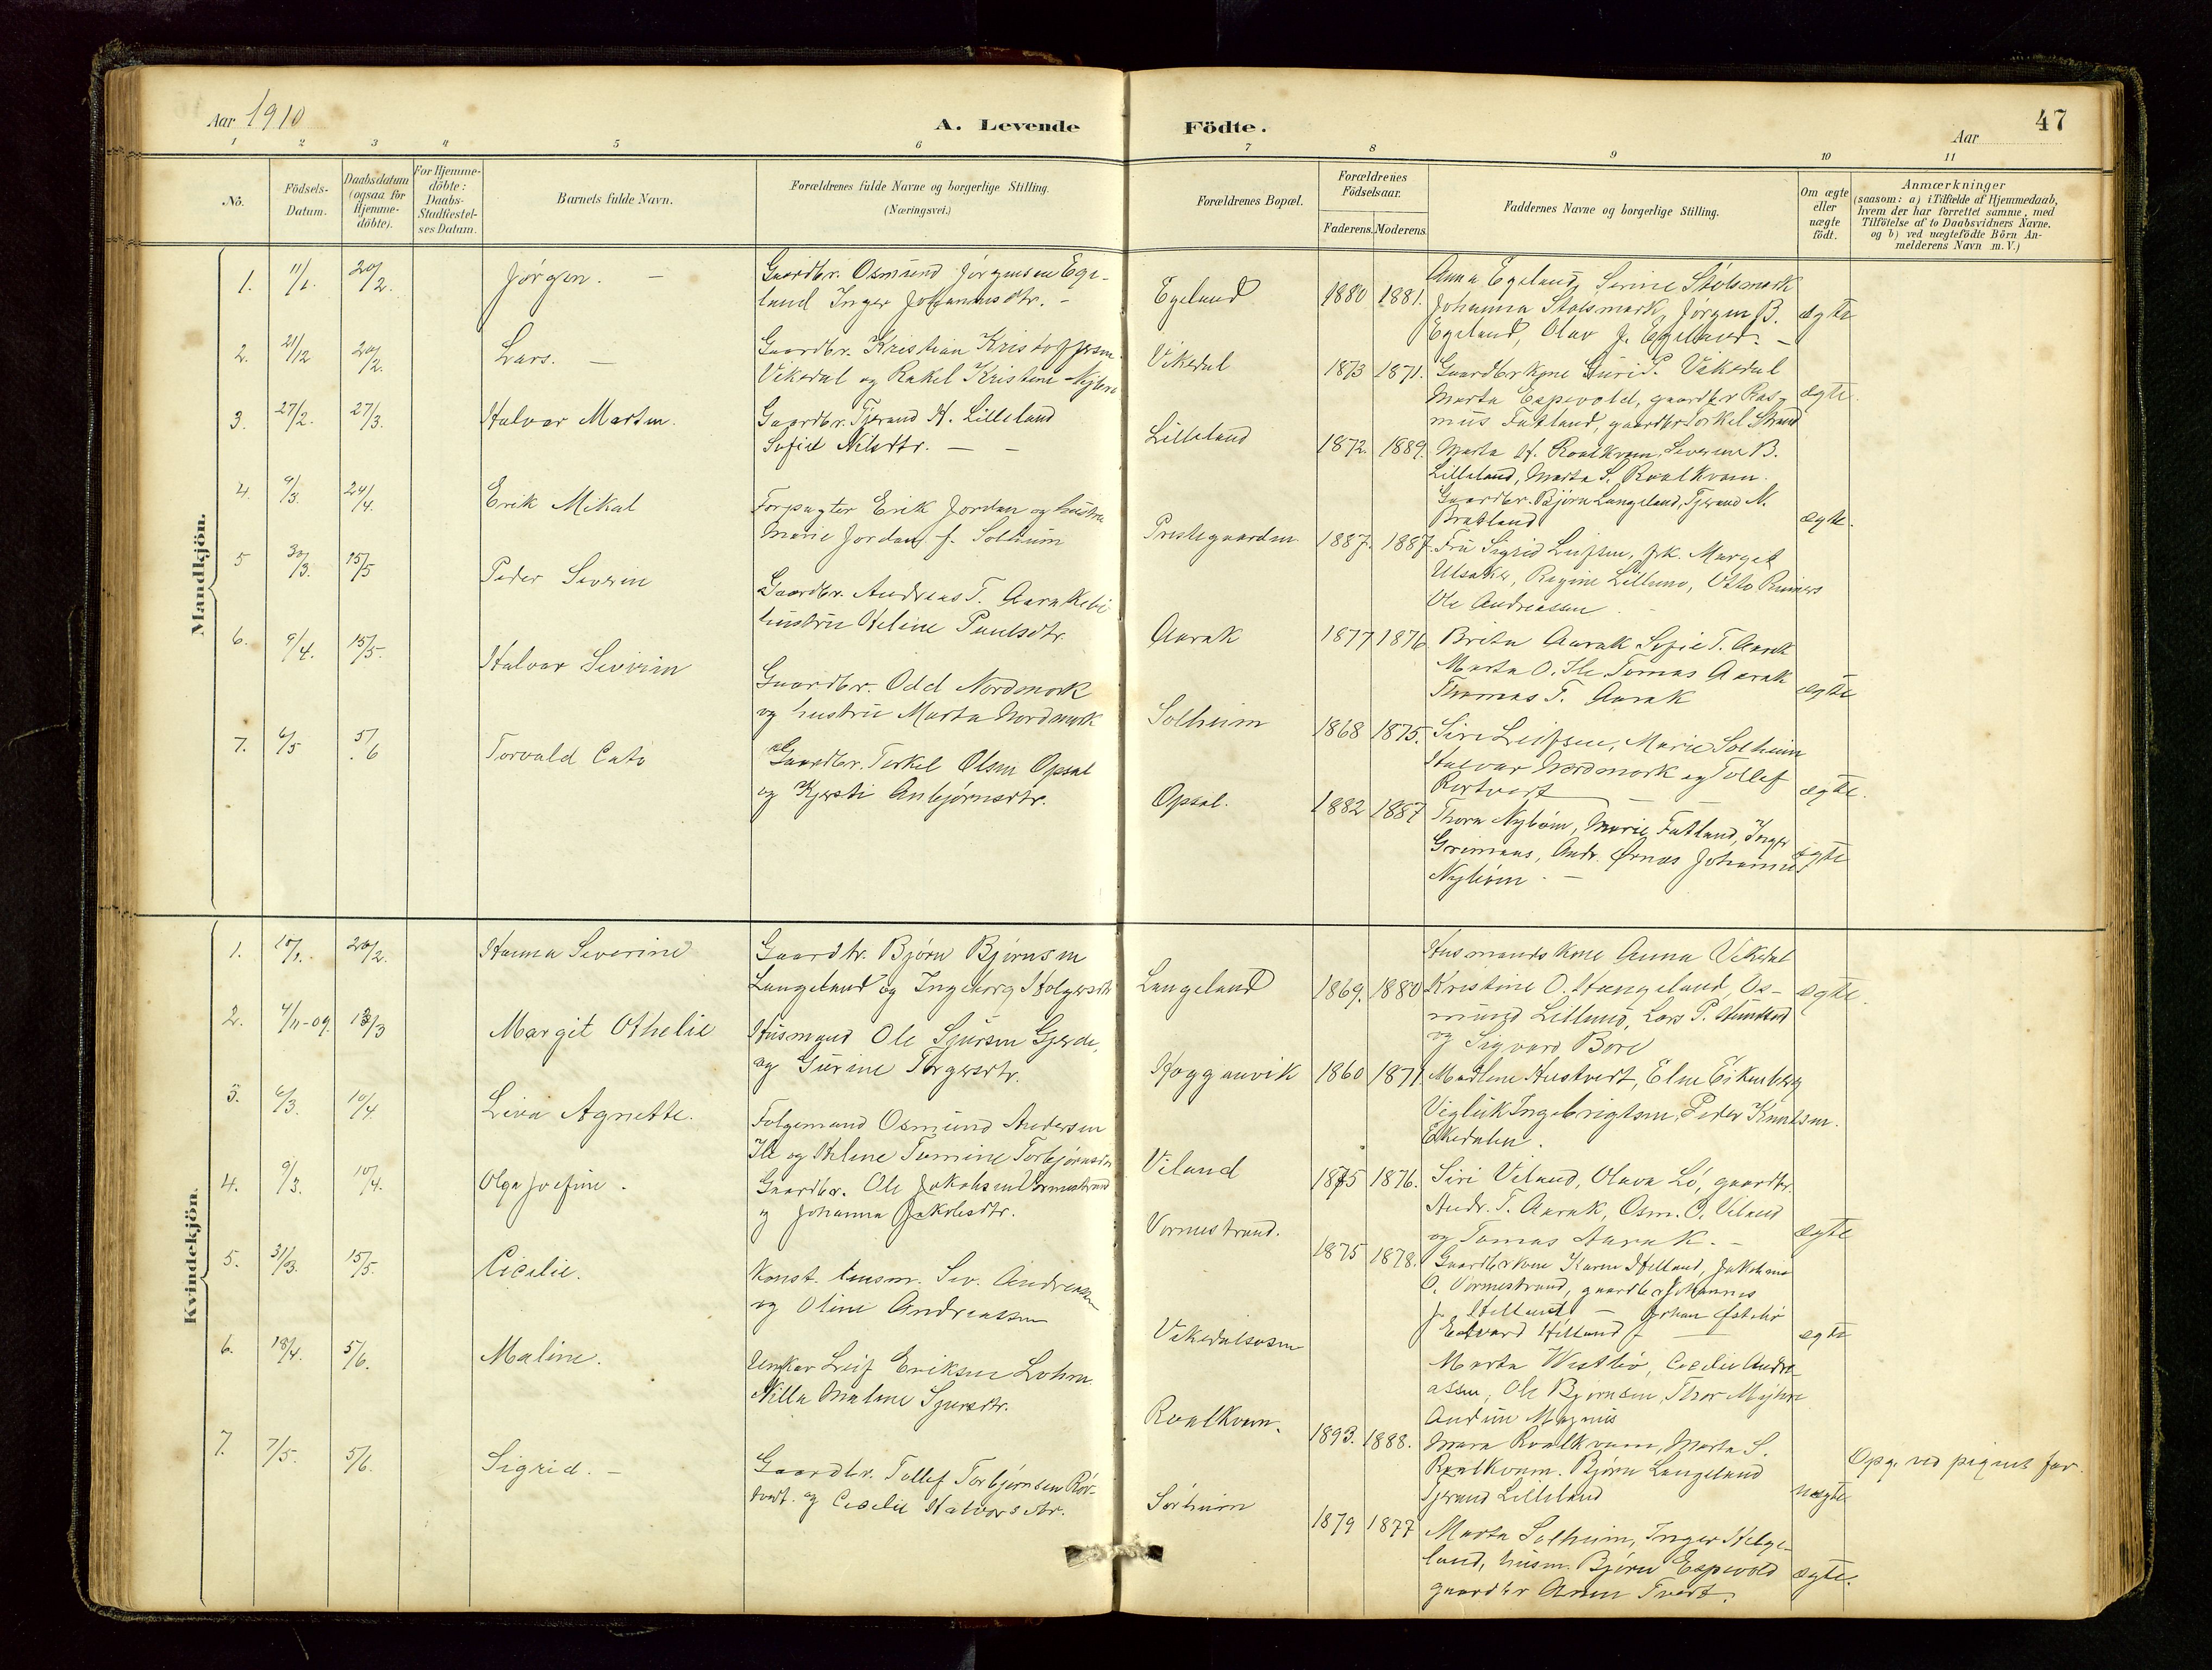 Aar 1910
A. Levende Födte.
Aar
47
1 2 3 4 5 6 7 8 9 10 11
Nö.
Födsels-
Datum.
Daabsdatum
(ogsaa for
Hjemme-
döbte).
For Hjemme-
döbte:
Daabs-
Stadfæstel-
ses Datum.
Barnets fulde Navn.
Forældrenes fulde Navne og borgerlige Stilling.
(Næringsvei.)
Forældrenes Bopæl.
Forældrenes
Födselsaar.
Faderens. Moderens.
Faddernes Navne og borgerlige Stilling.
Om ægte
eller
uægte
födt.
Anmærkninger
(saasom: a) i Tilfælde af Hjemmedaab,
hvem der har forrettet samme, med
Tilföielse af to Daabsvidners Navne.
og b) ved uægtefödte Börn An-
melderens Navn m.V.)
Mandkjön.
1. 11/1. 20/2. Jørgen. —
Gaardbr. Osmund Jørgensen Ege-
land Inger Johannesdtr. -
Egeland 1880 1881.
Anna Egeland, Serine Stølsmark
Johanna Stølsmark, Jørgen B.
Egeland, Olav J. Egeland. -
ægte
2. 21/12 20/2. Lars. —
Gaardbr. Kristian Kristoffersen
Vikedal og Rakel Kristine
Vikedal 1873 1871.
Gaardbrkone Guri P. Vikedal
Marta Espevold, gaardbr Ras-
mus Fatland, gaardbr Torkel Strand
ægte.
3. 27/2. 27/3. Halvor Martin.
Gaardbr. Tjerand H. Lilleland
Sofie Nilsdtr. — —
Lilleland 1872. 1889.
Marta H. Roalkvam, Severine B.
Lilleland, Marta S. Roalkvam
Gaardbr. Bjørn Langeland, Tjerand N.
Bratland
ægte.
4. 9/3. 24/4. Erik Mikal
Forpagter Erik Jordan og hustru
Marie Jordan f. Solheim
Prestegaarden 1887. 1887.
Fru Sigrid Leifsen, frk. Marget
Ulsaker, Regine Lillund, Otto Reimers
Ole Andreassen
5 30/3. 15/5 Peder Severin
Gaardbr. Andreas T. Aarak
hustru Heline Paulsdtr.
Aarak 1877 1876
Brita Aarak Sofie T. Aarak
Marta O. Ile Tomas Aarak
Thomas T. Aarak
ægte
6. 9/4. 15/5. Halvor Severin
Gaardbr. Odd Nordmork
og hustru Marta Nordmork
Solheim 1868 1875.
Siri Leifsen, Marie Solheim
Halvor Nordmork og Tollef
Rørtveit
ægte.
7. 6/5 5/6 Torvald Cato
Gaardbr. Torkel Olsen Opsal
og Kjersti Anbjørnsdtr.
Opsal. 1882 1887
Thora Nyheim, Marie Fatland, Inger
Grimaas, Andr. Ørnes Johannes
Nyheim. —
ægte
Kvindekjön.
1. 10/1. 20/2. Hanna Severine
Gaardbr. Bjørn Bjørnsen
Langeland og Ingeborg Holgersdtr
Langeland 1869. 1880
Husmandskone Anna Vikedal
Kristine O. Haugeland, Os-
mund Lillund, Lars P.
og Sigvard Bore
ægte.
2. 4/11-09. 13/3 Margit Othelie
Husmand Ole Sjursen Gjerde,
og Gurine Torgersdtr.
Hogganvik 1860 1871
Madlene Hustvedt, Eline Eikenberg
Vigleik Ingebrigtsen, Peder Knutsen.
Ekedalen.
3. 6/3. 10/4. Liva Agnette.
Folgemand Osmund Andersen
Ile og Helene Tomine Torbjørnsdtr
Viland 1875 1876.
Siri Viland, Olava Lö, gaardbr.
Andr. T. Aarak, Osm. O. Viland
og Tomas Aarak. -
ægte
4. 9/3. 10/4. Olga Josefine.
Gaardbr. Ole Jakobsen Vormestrand
og Johanna Jakobsdtr.
Vormestrand. 1875 1878.
Gaardbrkone Karen Helland, Jakobine
O. Vormestrand, gaardbr Johannes
J. Helland — Johan Østebö
Edvard Helland
ægte
5. 31/3. 15/5. Cicilie.
Konst. lensm. Sev. Andreasen
og Oline Andreassen
Vikedalsosen
Marta Westbö, Cecilie Andre-
assen, Ole Bjørnsen, Thor Myhre
Audun Magnus
6. 18/4. 5/6. Maline.
Ungkar Leif Eriksen
Nilla Malene Sjursdtr.
Roalkvam. 1893. 1888.
Mara Roalkvam, Marta S.
Roalkvam. Bjørn Langeland
Tjerand Lilleland
uægte
Opg. ved pigens far.
7. 7/5. 5/6. Sigrid. —
Gaardbr. Tollef Torbjørnsen Rör-
tvedt. og Cecilie Halvorsdtr.
Sörheim 1879 1877
Marta Solheim, Inger Helge-
land, husm. Bjørn Espevold
gaardbr Tvedt.
ægte.